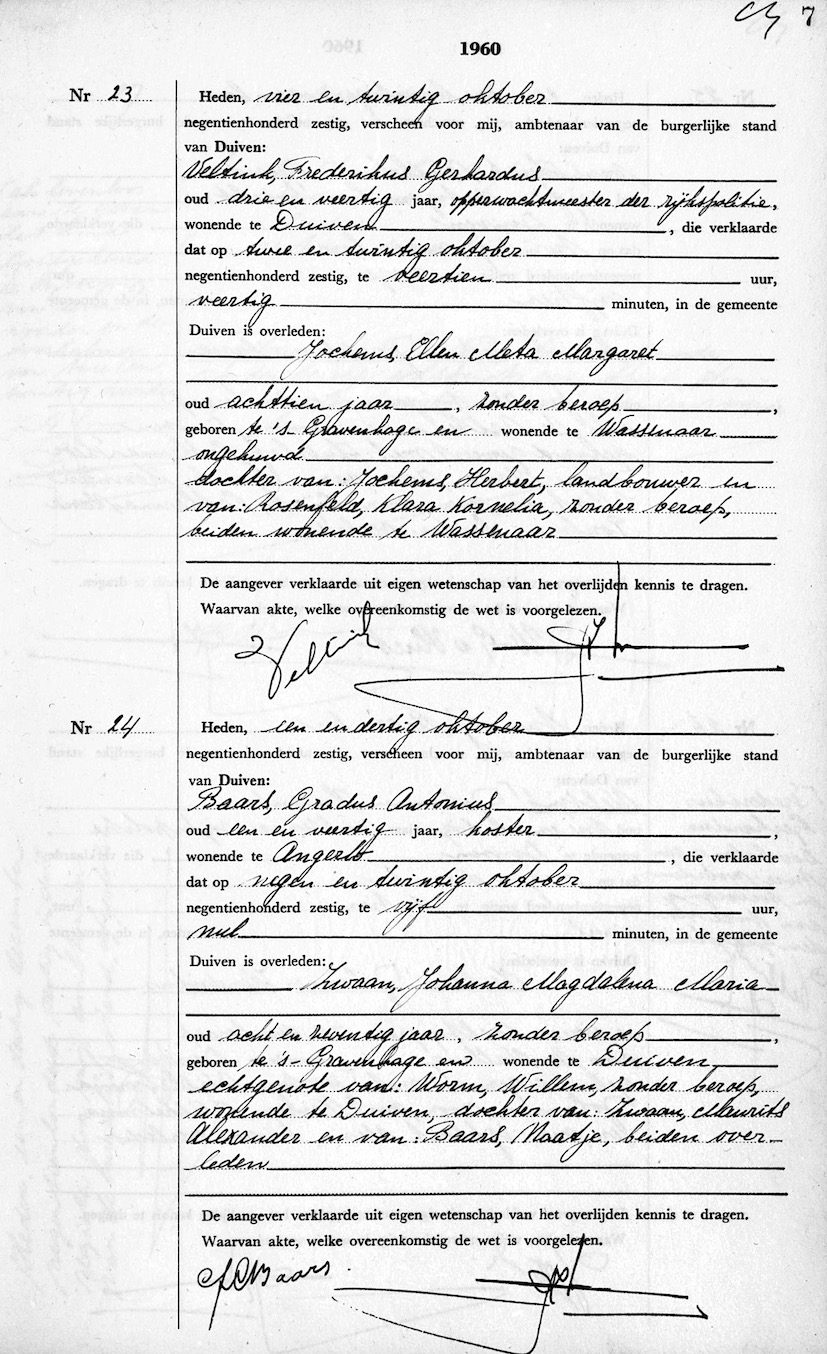 7
1960
Nr 23 Heden, vier en twintig oktober
negentienhonderd zestig, verscheen voor mij, ambtenaar van de burgerlijke stand
van Duiven:
Veltink, Frederikus Gerhardus
oud drie en veertig jaar, opperwachtmeester der rijkspolitie,
wonende te Duiven, die verklaarde
dat op twee en twintig oktober
negentienhonderd zestig, te veertien uur,
veertig minuten, in de gemeente
Duiven is overleden:
Jochems, Ellen Meta Margaret
oud achttien jaar, zonder beroep,
geboren te 's-Gravenhage en wonende te Wassenaar
ongehuwd
dochter van: Jochems, Herbert, landbouwer en
van: Rosenfeld, Klara Kornelia, zonder beroep,
beiden wonende te Wassenaar
De aangever verklaarde uit eigen wetenschap van het overlijden kennis te dragen.
Waarvan akte, welke overeenkomstig de wet is voorgelezen.
Veltink
Nr 24 Heden, een en dertig oktober
negentienhonderd zestig, verscheen voor mij, ambtenaar van de burgerlijke stand
van Duiven:
Baars, Gradus Antonius
oud een en veertig jaar, koster,
wonende te Angerlo, die verklaarde
dat op negen en twintig oktober
negentienhonderd zestig, te vijf uur,
nul minuten, in de gemeente
Duiven is overleden:
Zwaan, Johanna Magdalena Maria
oud acht en zeventig jaar, zonder beroep,
geboren te 's-Gravenhage en wonende te Duiven,
echtgenote van: Worm, Willem, zonder beroep,
wonende te Duiven, dochter van: Zwaan, Maurits
Alexander en van: Baars, Naatje, beiden over-
leden
De aangever verklaarde uit eigen wetenschap van het overlijden kennis te dragen.
Waarvan akte, welke overeenkomstig de wet is voorgelezen.
Baars